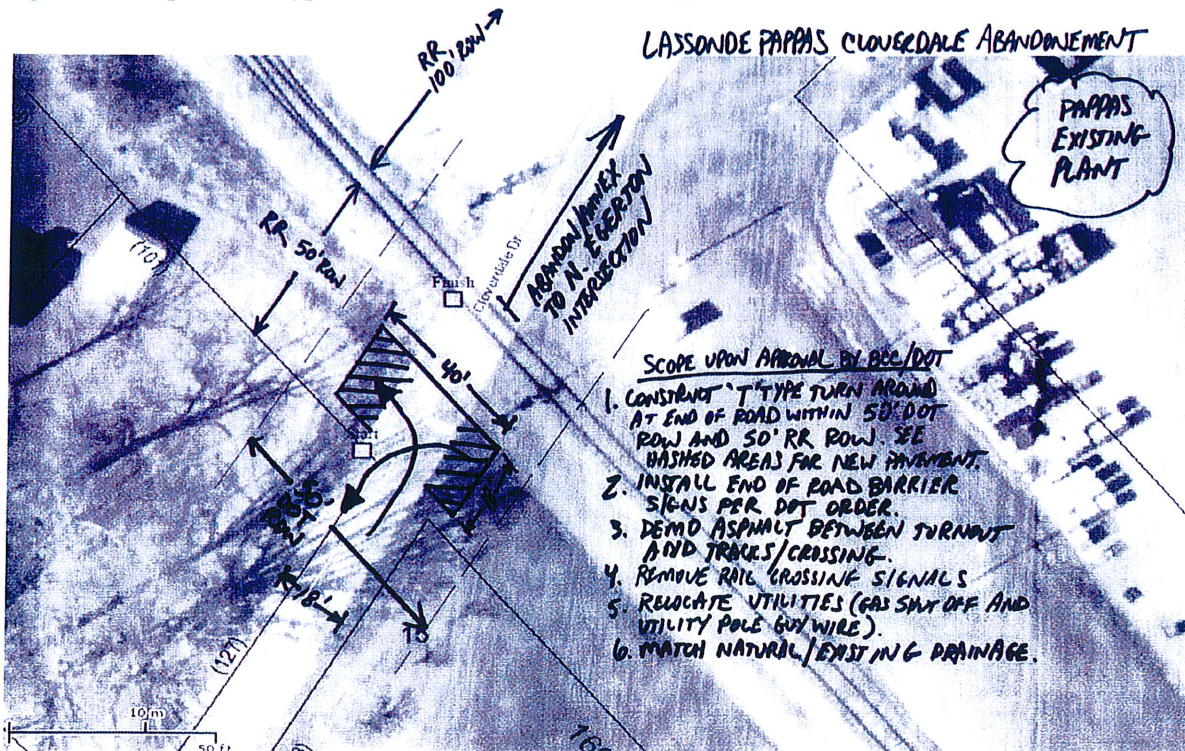 LASSONDE PAPPAS CLOVERDALE ABANDONEMENT
RR
100' ROW
PAPPAS
EXISTING
PLANT
RR 50' ROW
(107)
ABANDON/ANNEX
TO N. EGERTON
INTERSECTION
Finish
Cloverdale Dr
40'
Start
SCOPE UPON APPROVAL BY BCC/DOT
1. CONSTRUCT 'T' TYPE TURN AROUND
AT END OF ROAD WITHIN 50' DOT
ROW AND 50' RR ROW. SEE
HASHED AREAS FOR NEW PAVEMENT.
2. INSTALL END OF ROAD BARRIER
SIGNS PER DOT ORDER.
3. DEMO ASPHALT BETWEEN TURNOUT
AND TRACKS/CROSSING.
4. REMOVE RAIL CROSSING SIGNALS
5. RELOCATE UTILITIES (GAS SHUT OFF AND
UTILITY POLE GUY WIRE).
6. MATCH NATURAL/EXISTING DRAINAGE.
18'
(127)
10 m
50 ft